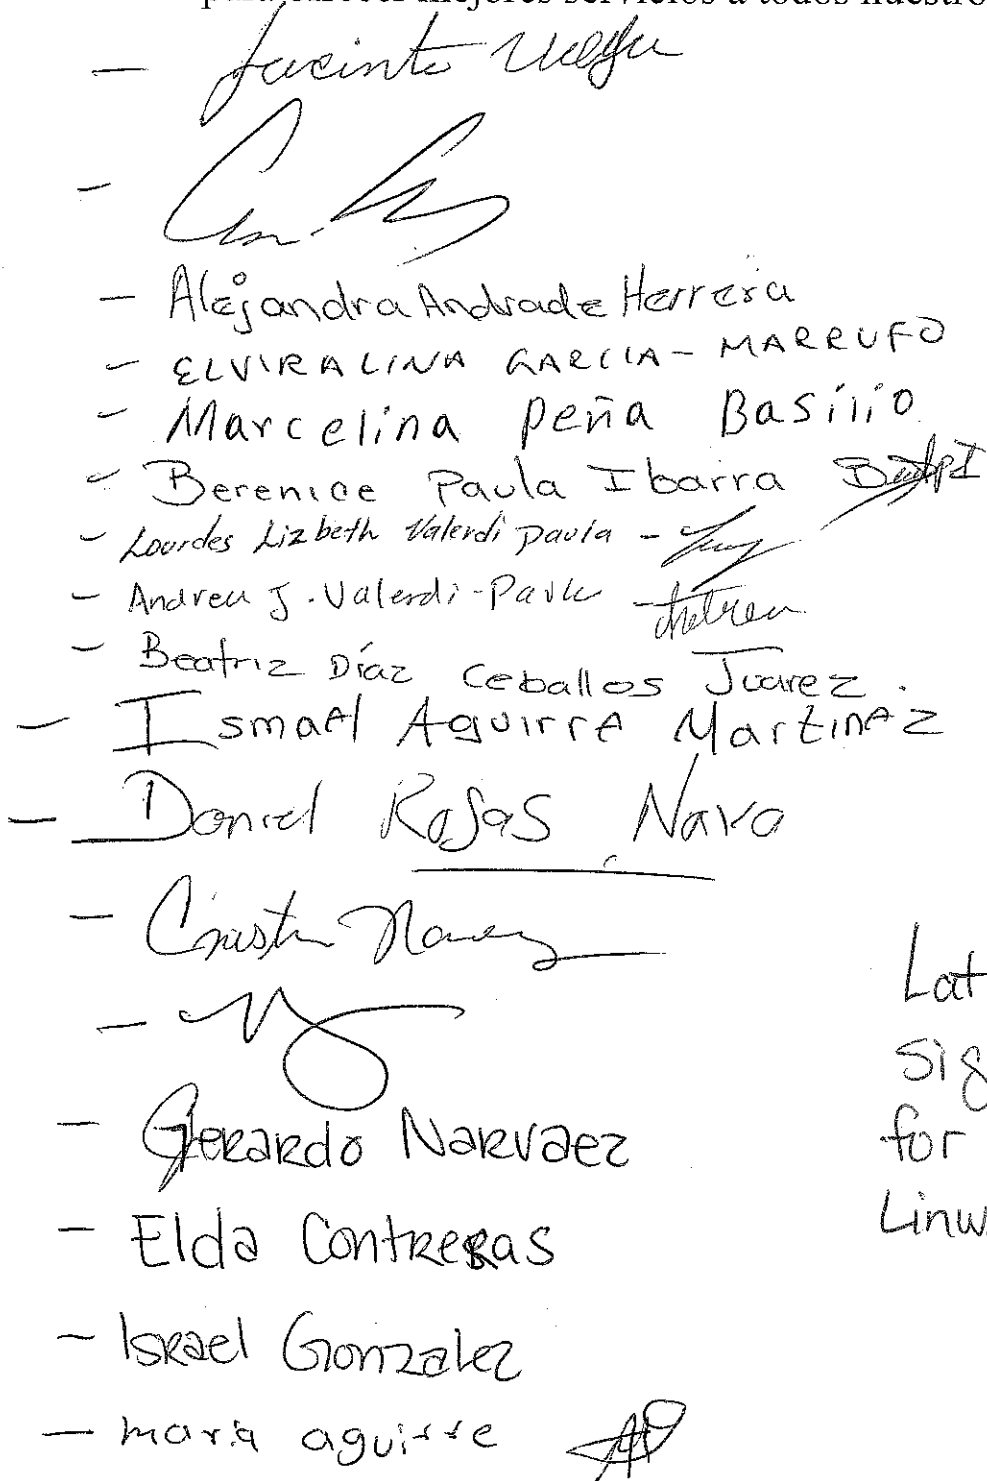 mejores servicios a todos nuestro
- Jacinto
- Alejandra Andrade Herrera
- ELVIRA LINA GARCIA - MARRUFO
- Marcelina Peña Basilio
- Berenice Paula Ibarra
- Lourdes Lizbeth Valerdi Paula -
- Andrea J. Valerdi-Paula
- Beatriz Díaz Ceballos Juarez.
- Ismael Aguirre Martinez
- Daniel Rojas Nava
- Gerardo Narvaez
- Elda Contreras
- Israel Gonzalez
- maria aguirre
Lat
sig
for
Linw